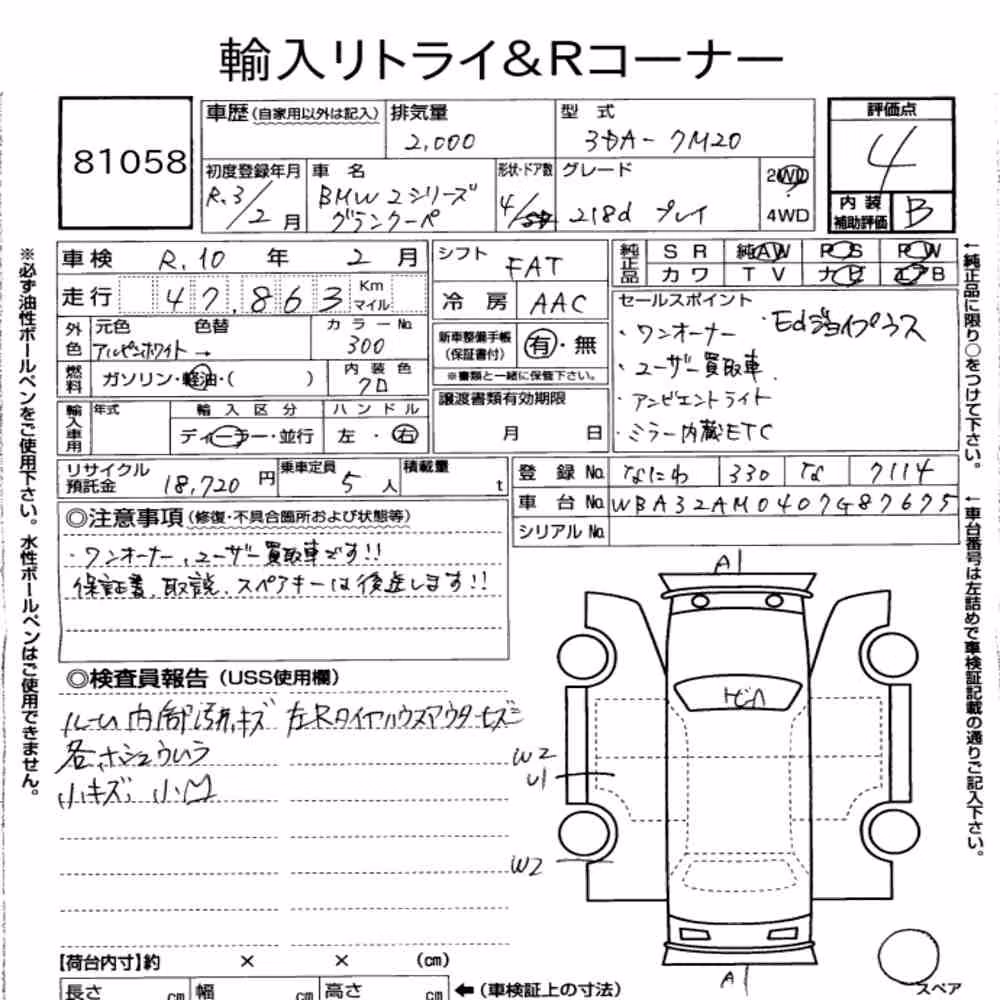 輸入リトライ&Rコーナー
81058
車歴(自家用以外は記入)
排気量
2,000
型式
3DA-7M20
評価点
4
初度登録年月
R.3/2月
車名
BMW 2シリーズ
グランクーペ
形状・ドア数
4/5D
グレード
218d プレイ
2WD
4WD
内装
補助評価
B
車検 R.10年 2月
走行 47,863 Km マイル
外色
元色 色替
アルピンホワイト →
カラーNo.
300
燃料
ガソリン・軽油・( )
内装色
クロ
輸入車用
年式
輸入区分
ディーラー・並行
ハンドル
左・右
シフト
FAT
冷房
AAC
新車整備手帳
(保証書付)
有・無
※書類と一緒に保管下さい。
譲渡書類有効期限
月 日
純正品
SR 純AW PS PW
カワ TV ナビ エアB
セールスポイント
・ワンオーナー ・Edジョイプラス
・ユーザー買取車
・アンビエントライト
・ミラー内蔵ETC
リサイクル
預託金
18,720円
乗車定員
5人
積載量
t
登録No. なにわ 330 な 7114
車台No. WBA32AM0407G87675
シリアルNo.
◎注意事項(修復・不具合箇所および状態等)
・ワンオーナー、ユーザー買取車です!!
保証書、取説、スペアキーは後送します!!
◎検査員報告(USS使用欄)
ルーム内部汚れキズ 左Rタイヤハウスアウターキズ
小キズ、小凹
A1
W2
U1
W2
A1
スペア
【荷台内寸】約 × × (cm)
長さ cm 幅 cm 高さ cm ←(車検証上の寸法)
※必ず油性ボールペンをご使用下さい。水性ボールペンはご使用できません。
←純正品に限り○をつけて下さい。
←車台番号は左詰めで車検証記載の通りご記入下さい。